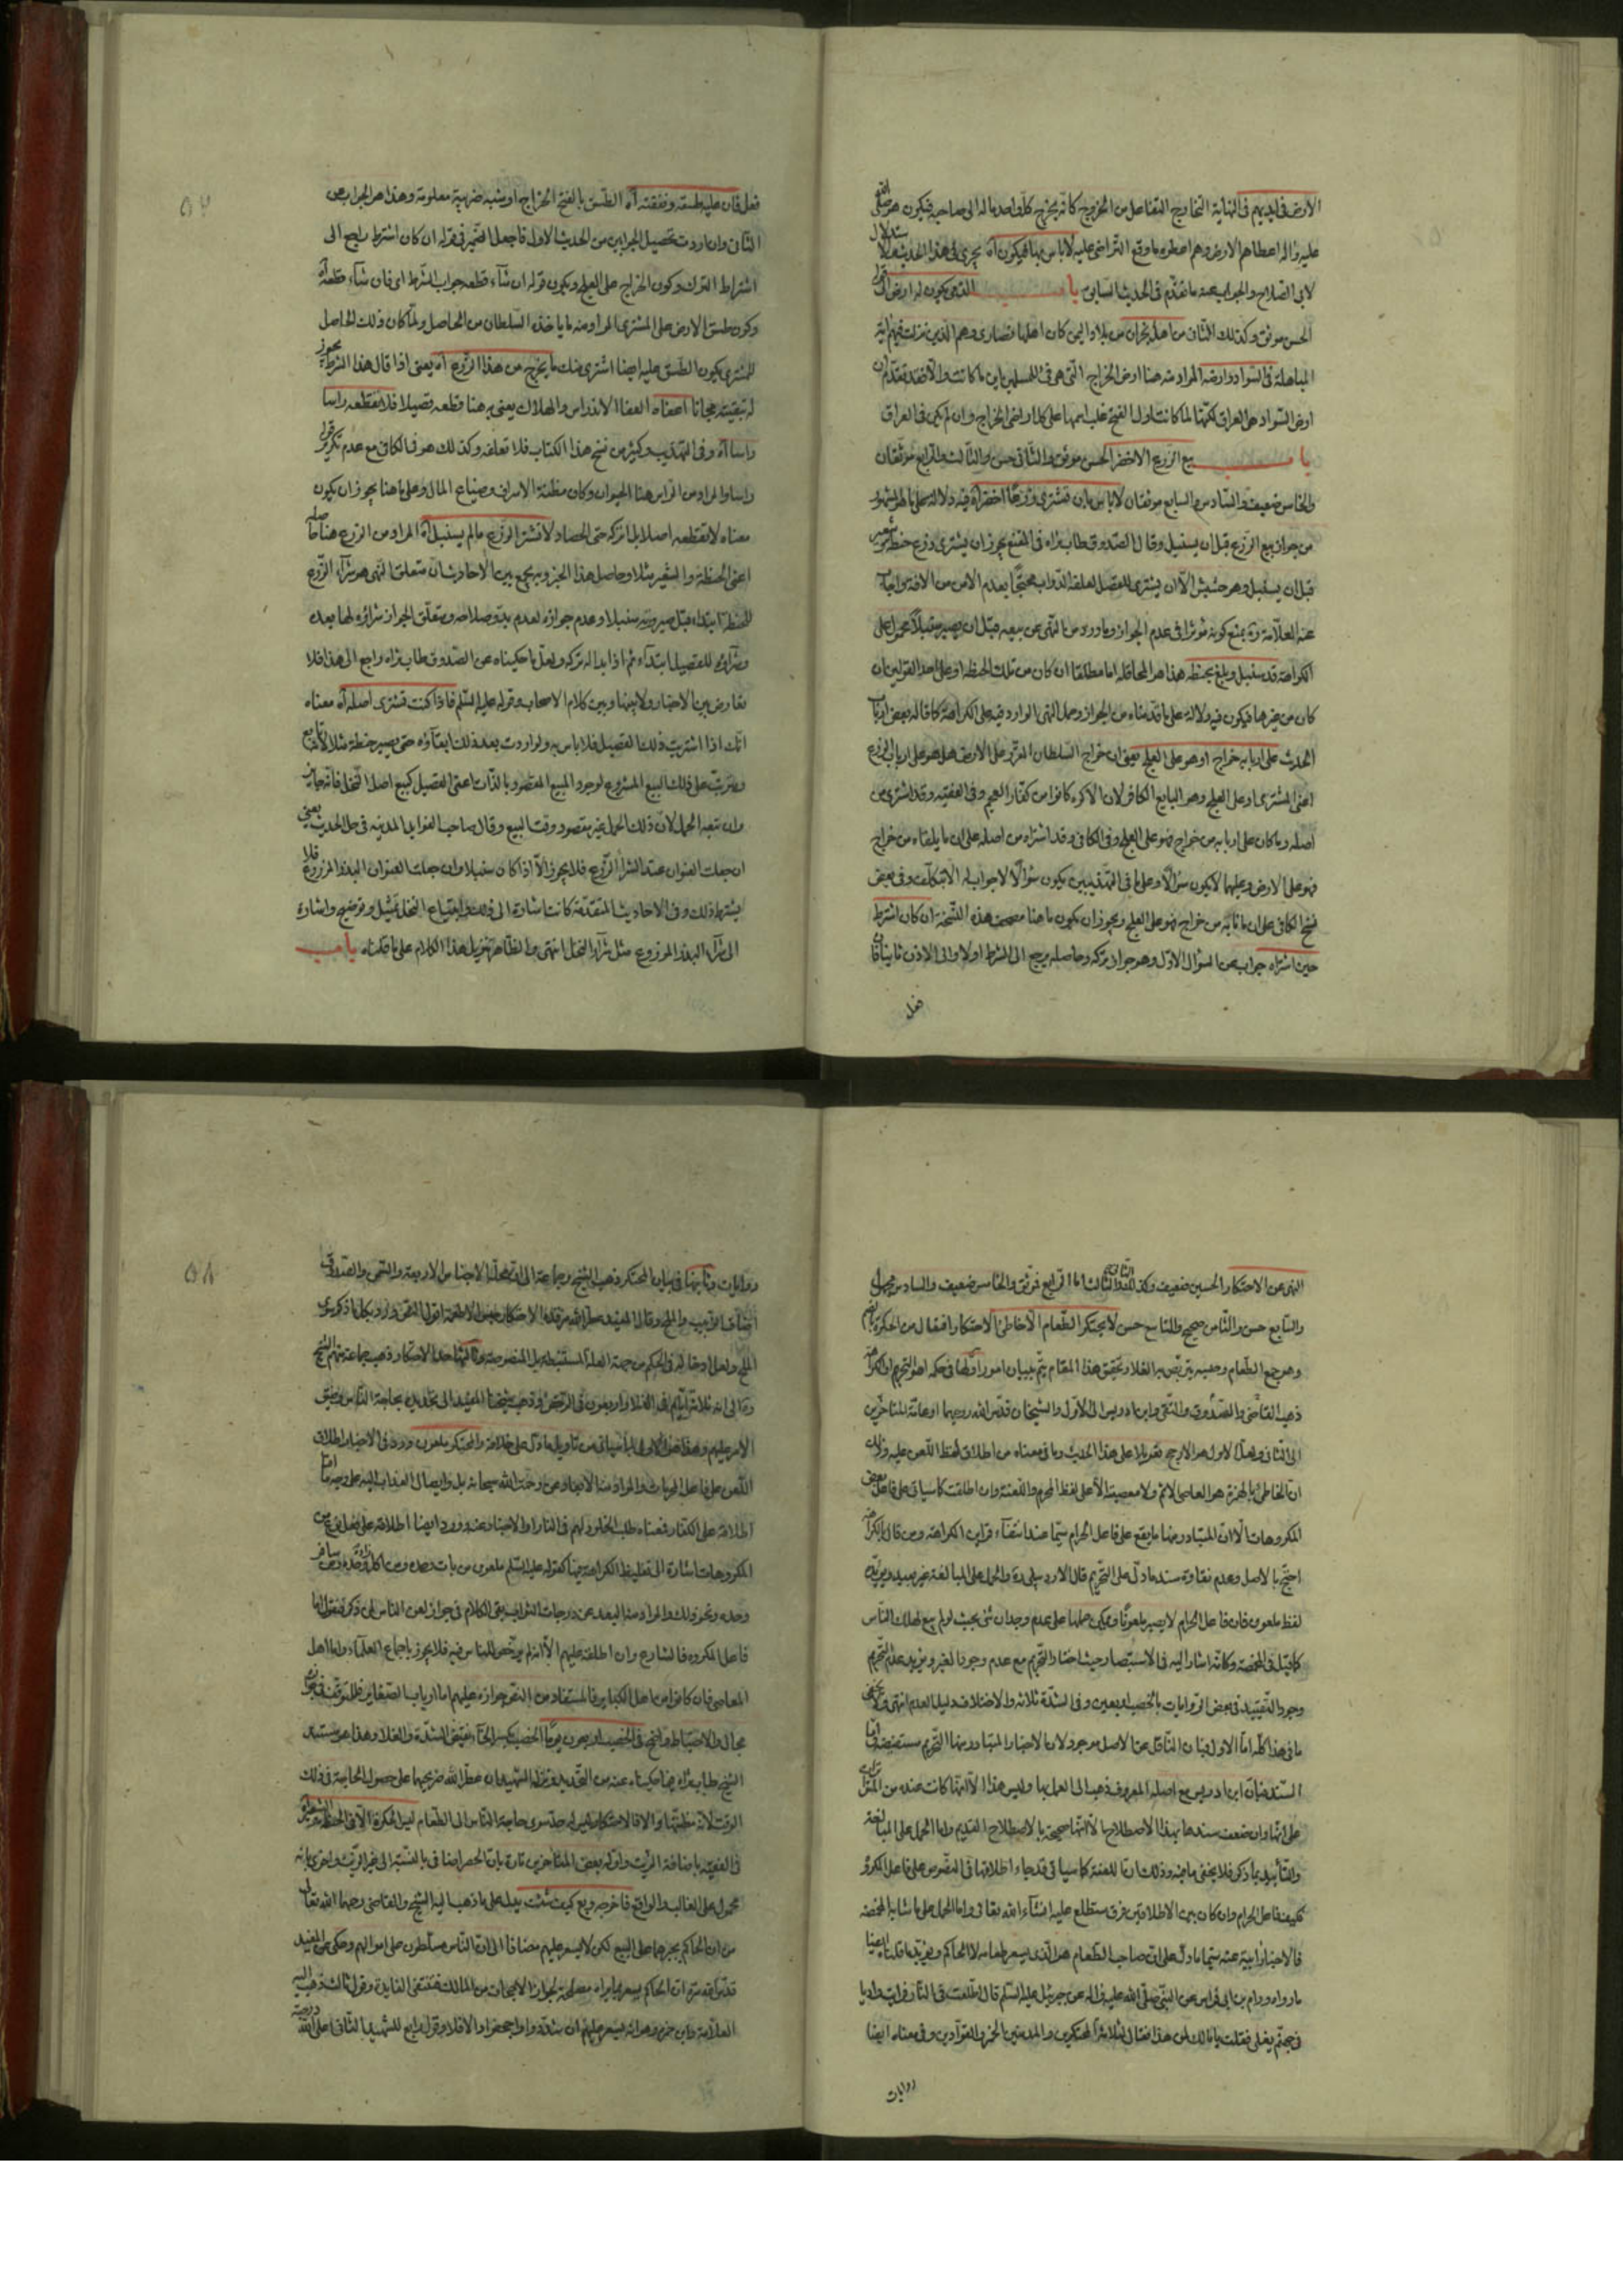 الارض في ايديهم في النهاية التخارج التفاعل من الخروج كانه يخرج كل واحد ماله الى صاحبه فيكون هو صلى الله
عليه واله اعطاهم الارض وهم اعطوه ما وقع التراضي عليه لا باس بهذا فيكون آه يجري في هذا الحديث استدلال
لابي الصلاح والجواب عنه ما تقدم في الحديث السابق باب الذمي يكون له ارض قوله
الحسن موثق وكذلك الثاني من اهل نجران من بلاد اليمن كان اهلها نصارى وهم الذين نزلت فيهم اية
المباهلة في السواد وارضه المراد منه هنا ارض الخراج التي هي في للمسلمين ما كانت والا فقد تقدم ان
ارض السواد هي العراق لكنها لما كانت اول الفتح غلب اسمها على كل اراضي الخراج وان لم يكن في العراق
باب بيع الزرع الاخضر الحسن موثق والثاني حسن والثالث والرابع موثقان
والخامس ضعيف والسادس والسابع موثقان لا باس بان تشتري زرعا اخضر آه فيه دلالة على ما هو المشهور
من جواز بيع الزرع قبل ان يسنبل وقال الصدوق طاب ثراه في المقنع لا يجوز ان يشترى زرع حنطة وشعير
قبل ان يسنبل وهو حشيش الا ان يشترى للقصل لعلفه الدواب محتجا بعدم الامن من الافة واجاب
عنه العلامة ره بمنع كونه مؤثرا في عدم الجواز وما ورد من النهي عن بيعه قبل ان يصير سنبلا محمول على
الكراهة قد سنبل وبلغ بحنطة هذا هو المحاقلة اما مطلقا ان كان من تلك الحنطة او على احد القولين ان
كان من غيرها فيكون فيه دلالة على ما قدمناه من الجواز وحمل النهي الوارد فيه على الكراهة كما قاله بعض ارباب
الحديث على اربابه خراج او هو على العلج يعني ان خراج السلطان المقرر على الارض هل هو على ارباب الزرع
اعني المشتري او على العلج وهو البايع الكافر لان الاكرة كانوا من كفار العجم وفي الفقيه وقد اشترى من
اصله وما كان على اربابه من خراج فهو على العلج وفي الكافي وقد اشتراه من اصله على ان ما يلقاه من خراج
فهو على الارض وعليهما لا يكون سؤالا وعلى ما في التهذيبين يكون سؤالا لا جواب له الا بتكلف وفي بعض
نسخ الكافي على ان ما نابه من خراج فهو على العلج ويجوز ان يكون ما هنا مصحف هذه النسخة ان كان اشترط
حين اشتراه جواب عن السؤال الاول وهو جواز تركه وحاصله يرجع الى الشرط اولا والى الاذن ثانيا فان
فعل
٥٧
فعل فان عليه طسقه ونفقته آه الطسق بالفتح الخراج او شبه ضريبة معلومة وهذا هو الجواب عن
الثاني وان اردت تحصيل الجوابين من الحديث الاول فاجعل الضمير في قوله ان كان اشترط راجع الى
اشتراط الترك وكون الخراج على العلج ويكون قوله ان شاء قطعه جواب الشرط اي فان شاء قطعه آه
وكون طسق الارض على المشتري المراد منه ما ياخذه السلطان من الحاصل ولما كان ذلك الحاصل
للمشتري يكون الطسق عليه ايضا اشتري منك ما يخرج من هذا الزرع آه يعني اذا قال هذا الشرط يجوز
له تبقيته مجانا اعفاه العفا الاندراس والهلاك يعني به هنا قطعه قصيلا فلا تقطعه راسا
راسا آه وفي التهذيب وكثير من نسخ هذا الكتاب فلا تعلفه وكذلك هو في الكافي مع عدم تكرير قوله
راسا والمراد من الراس هنا الحيوان وكان مظنة الاسراف وضياع المال وعلى ما هنا يجوز ان يكون
معناه لا تقطعه اصلا بل اتركه حتى الحصاد لا تشتر الزرع ما لم يسنبل آه المراد من الزرع هنا حاصله
اعني الحنطة والشعير مثلا وحاصل هذا الخبر وبه يجمع بين الاحاديث ان متعلق النهي هو شراء الزرع
للحنطة ابتداء قبل صيرورته سنبلا وعدم جوازه لعدم بدو صلاحه ومتعلق الجواز شراؤه لها بعده
وشراؤه للقصيل ابتداء ثم اذا بدا له تركه ولعل ما حكيناه عن الصدوق طاب ثراه راجع الى هذا فلا
تعارض بين الاخبار ولا بينها وبين كلام الاصحاب وقوله عليه السلم فاذا كنت تشتري اصله آه معناه
انك اذا اشتريت ذلك لقصيل فلا باس به ولو اردت بعد ذلك ابقاؤه حتى يصير حنطة مثلا
ويترتب على ذلك البيع المشروع لوجود المبيع المقصود بالذات اعني القصيل كبيع اصل النخل فانه جايز
وان تبعه الحمل لان ذلك الحمل غير مقصود وقت البيع وقال صاحب الفوايد المدنية في حل الحديث يعني
ان جعلت العنوان عند الشراء الزرع فلا يجوز الا اذا كان سنبلا وان جعلت العنوان البذر المزروع فلا
يشترط ذلك وفي الاحاديث المتقدمة كانت اشارة الى ذلك وابتياع النخل تمثيل وتوضيح واشارة
الى شراء البذر المزروع مثل شراء النخل انتهى والظاهر تنزيل هذا الكلام على ما قلناه باب
النهي عن الاحتكار الحسين ضعيف وكذا الثاني والثالث اما الرابع فموثق والخامس ضعيف والسادس مجهول
والسابع حسن والثامن صحيح والتاسع حسن لا يحتكر الطعام الا خاطئ الاحتكار افتعال من الحكرة بالضم
وهو جمع الطعام وحبسه يتربص به الغلا وتحقيق هذا المقام يتم ببيان امور اولها في حكمه اهو التحريم او الكراهة
ذهب القاضي والصدوق والتقي وابن ادريس الى الاول والشيخان قدس الله روحيهما وعامة المتاخرين
الى الثاني ولعل الاول هو الارجح تعويلا على هذا الحديث وما في معناه من اطلاق لفظ اللعن عليه وذلك
ان الخاطئ بالهمزة هو العاصي الاثم ولا معصية الا على لفظ المحرم واللعنة وان اطلقت كما سياتي على فاعل بعض
المكروهات الا ان المتبادر منها ما يقع على فاعل الحرام سيما عند انتفاء قراين الكراهة ومن قال بالكراهة
احتج بالاصل وعدم نقاوة سند ما دل على التحريم قال الاردبيلي ره والحمل على المبالغة غير بعيد ويؤيده
لفظ ملعون فان فاعل الحرام لا يصير ملعونا ويمكن حملها على عدم وجدان شئ بحيث لو لم يبع لهلك الناس
كما قيل في المخمصة وكانه اشار اليه في الاستبصار حيث اختار التحريم مع عدم وجود الغير ويؤيد عدم التحريم
وجود التقييد في بعض الروايات بالخصب اربعين وفي الشدة ثلاثة والاختلاف دليل العدم انتهى ولا يخفى
ما في هذا كله اما الاول فبان الناقل عن الاصل موجود لان الاخبار المتبادر منها التحريم مستفيضة واما
السند فبان ابن ادريس مع اصله المعروف ذهب الى العمل بها وليس هذا الا لانها كانت عنده من المتواترات
على انها وان ضعف سندها بهذا الاصطلاح الا انها صحيحة بالاصطلاح القديم واما الحمل على المبالغة
والتأييد بما ذكر فلا يخفى ما فيه وذلك ان اللعنة كما سياتي قد جاء اطلاقها في النصوص على فاعل المكروه
فكيف فاعل الحرام وان كان بين الاطلاقين فرق ستطلع عليه انشاء الله تعالى واما الحمل على ما شابه المخمصة
فالاخبار ابية عنه سيما ما دل على ان صاحب الطعام هو الذي يسعر طعامه لا الحاكم ويؤيد ما قلناه ايضا
ما رواه ورام بن ابي فراس عن النبي صلى الله عليه واله عن جبرئيل عليه السلم قال اطلعت في النار فرايت واديا
في جهنم يغلي فقلت يا مالك لمن هذا فقال لثلاثة المحتكرين والمدمنين الخمر والقوادين وفي معناه ايضا
روايات
٥٨
روايات وثانيها في بيان المحتكر ذهب الشيخ وجماعة الى انه الاجناس الاربعة والسمن والصدوق
اضاف الزبيب والملح وقال المفيد عطر الله مرقده الاحتكار حبس الاطعمة
وثالثها حد الاحتكار وذهب جماعة منهم الشيخ
وقالى انه ثلاثة ايام في الغلا واربعون في الرخص وذهب شيخنا المفيد الى تحديده بحاجة الناس وضيق
الامر عليهم وهذا هو الاولى لما سياتي من تاويل ما دل على خلافه والمحتكر ملعون ورد في الاخبار اطلاق
اللعن على فاعل المحرمات والمراد منه الابعاد عن رحمة الله سبحانه بل وايصال العذاب اليه على وجه ما اما
اطلاقه على الكفار فمعناه طلب الخلود لهم في النار والابعاد عنه وورد ايضا اطلاقه على فعل بعض من
المكروهات اشارة الى تغليظ الكراهة فيها كقوله عليه السلم ملعون من بات وحده ومن اكل زاده وحده ومن سافر
وحده ونحو ذلك والمراد منه البعد عن درجات الثواب بقي الكلام في جواز لعن الناس لمن ذكر فنقول اما
فاعل المكروه فالشارع وان اطلقه عليهم الا انه لم يرخص للناس فيه فلا يجوز باجماع العلماء واما اهل
المعاصي فان كانوا من اهل الكباير فالمستفاد من النص جوازه عليهم اما ارباب الصغاير فللتوقف فيه
مجال والاحتياط واضح في الخصب اربعون يوما الخصب بكسر الخاء نقيض الشدة والغلا وهذا هو مستند
الشيخ طاب ثراه فيما حكيناه عنه من التحديد ونزله الشهيدان عطر الله ضريحهما على حصول الحاجة في ذلك
الوقت لانه مظنتها والا فالاحتكار ليس له حد سوى حاجة الناس الى الطعام ليس الحكرة الا في الحنطة والشعير
في الفقيه باضافة الزيت واوله بعض المتاخرين تارة بان الحصر اضافي بالنسبة الى غير الزيت واخرى بانه
محمول على الغالب والواقع فاخرجه وبع كيف شئت يدل على ما ذهب اليه الشيخ والقاضي رحمهما الله تعالى
من ان الحاكم يجبرهما على البيع لكن لا يسعر عليهم مضافا الى ان الناس مسلطون على اموالهم وحكي عن المفيد
قدس الله سره ان الحاكم يسعر بما يراه مصلحة لجواز الاجحاف من المالك فتنتفي الفايدة وقول ثالث ذهب اليه
العلامة وابن حمزة وهو انه يسعر عليهم ان تشدد واجحف والا فلا وقول رابع للشهيد الثاني اعلى الله درجته